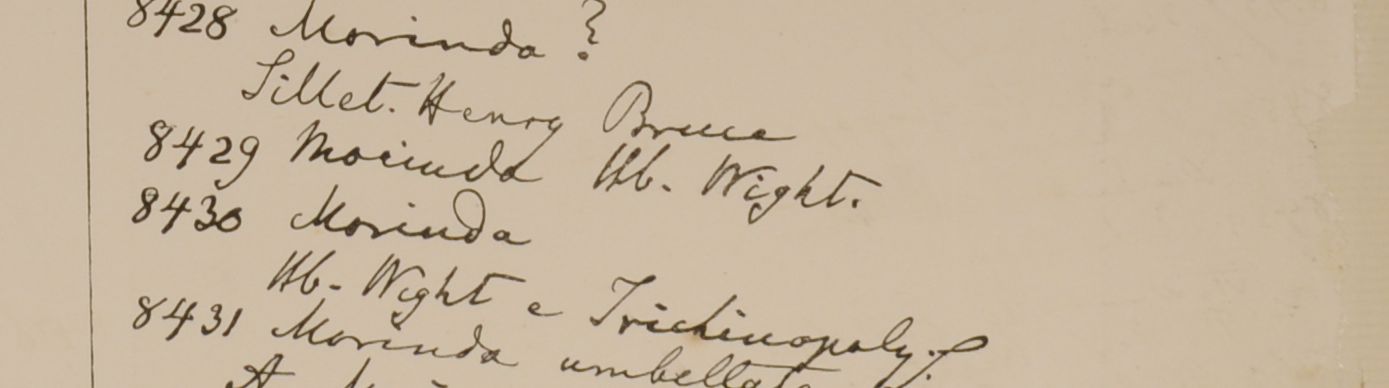 8428 Morinda ?
Sillet. Henry Bruce
8429 Morinda Hb. Wight.
8430 Morinda
Hb. Wight e Trichinopoly.
8431 Morinda umbellata